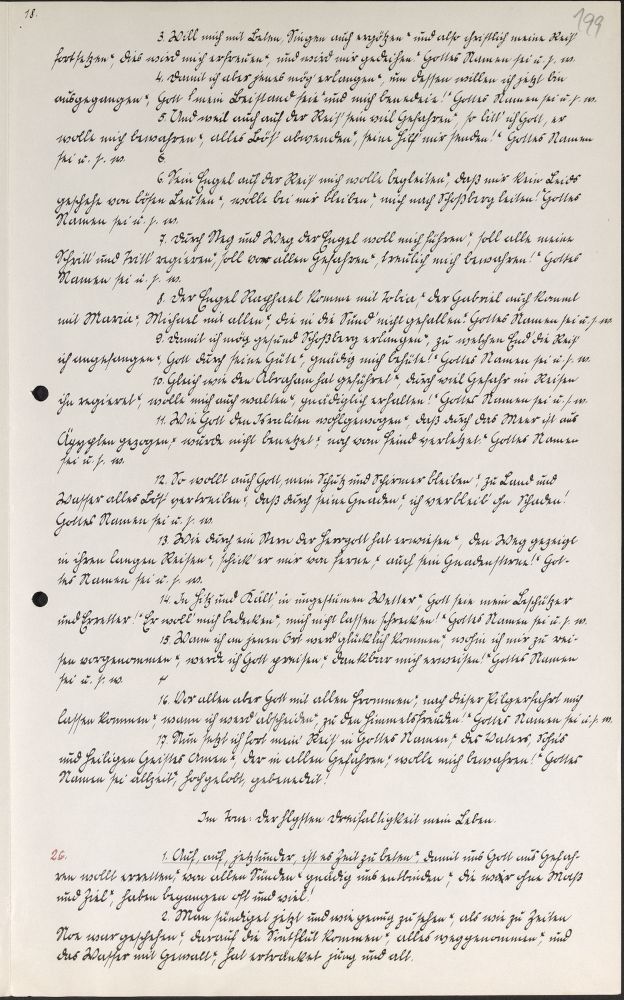 18.
199
3. Will mich mit Beten, Singen auch ergötzen * und also christlich meine Reis'
fortsetzen * dies wird mich erfreuen *, und wird mir gedeihen * Gottes Namen sei u. s. w.
4. Damit ich aber jenes mög' erlangen *, um dessen willen ich jetzt bin
ausgegangen *, Gott mein Beistand seie * und mich benedeie! * Gottes Namen sei u. s. w.
5. Und weil auch auf der Reis' sein viel Gefahren *, so bitt' ich Gott, er
wolle mich bewahren *, alles Bös' abwenden *, seine Hilf mir senden! * Gottes Namen
sei u. s. w.
6. Sein Engel auf der Reis' mich wolle begleiten *, daß mir kein Leids
geschehe von bösen Leuten *, wolle bei mir bleiben *, mich nach Schoßberg leiten! * Gottes
Namen sei u. s. w.
7. Durch Steg und Weg der Engel woll mich führen *, soll alle meine
Schritt' und Tritt' regieren *, soll vor allen Gefahren *, treulich mich bewahren! * Gottes
Namen sei u. s. w.
8. Der Engel Raphael komme mit Tobia, * der Gabriel auch kommt
mit Maria *, Michael mit allen *, die in die Sünd nicht gefallen! Gottes Namen sei u. s. w.
9. Damit ich mög gesund Schoßberg erlangen *, zu welchem End' die Reis'
ich angefangen *, Gott durch seine Güte *, gnädig mich behüte! * Gottes Namen sei u. s. w.
10. Gleich wie den Abraham hat geführet *, durch viel Gefahr im Reisen
ihn regieret *, wolle mich auch walten *, gnädiglich erhalten! * Gottes Namen sei u. s. w.
11. Wie Gott den Israeliten wohlgewogen *, daß durch das Meer ist aus
Ägypten gezogen *, wurde nicht benetzet *, noch vom Feind verletzet. * Gottes Namen
sei u. s. w.
12. So wollt auch Gott, mein Schutz und Schirmer bleiben *, zu Land und
Wasser alles Bös' vertreiben *, daß durch seine Gnaden *, ich verbleib' ohn Schaden!
Gottes Namen sei u. s. w.
13. Wie durch ein Stern der Herrgott hat erwiesen *, den Weg gezeigt
in ihren langen Reisen *, schick' er mir von ferne *, auch sein Gnadensterne! * Got-
tes Namen sei u. s. w.
14. In Hitz und Kält' in ungestümen Wetter *, Gott seie mein Beschützer
und Erretter! * Er woll' mich bedecken *, mich nicht lassen schrecken! * Gottes Namen sei u. s. w.
15. Wann ich an jenen Ort werd' glücklich kommen *, wohin ich mir zu rei-
sen vorgenommen *, werde ich Gott preisen *, dankbar mich erweisen! * Gottes Namen
sei u. s. w.
16. Vor allen aber Gott mit allen Frommen *, nach dieser Pilgerfahrt mich
lassen kommen *, wann ich werd' abscheiden *, zu den Himmelsfreuden! * Gottes Namen sei u. s. w.
17. Nun setz' ich fort mein Reis' in Gottes Namen, * des Vaters, Sohns
und Heiligen Geistes Amen *, der in allen Gefahren *, wolle mich bewahren! * Gottes
Namen sei allzeit *, hochgelobt, gebenedeit!
Im Tone: Der hlgsten Dreifaltigkeit mein Leben.
26. 1. Auf, auf, jetztunder, ist es Zeit zu beten *, damit uns Gott aus Gefah-
ren wollt erretten *, von allen Sünden * gnädig uns entbinden *, die wir ohne Maß
und Ziel *, haben begangen oft und viel!
2. Man sündiget jetzt und wie genug zu sehen *, als wie zu Zeiten
Noe war geschehen *, darauf die Sintflut kommen *, alles weggenommen *, und
das Wasser mit Gewalt *, hat ertränket jung und alt.